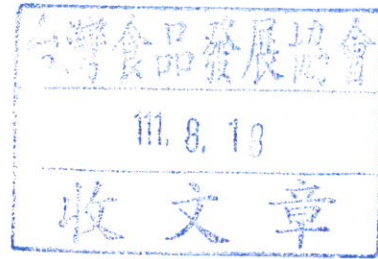 台灣食品發展協會
111. 8. 18
收文章